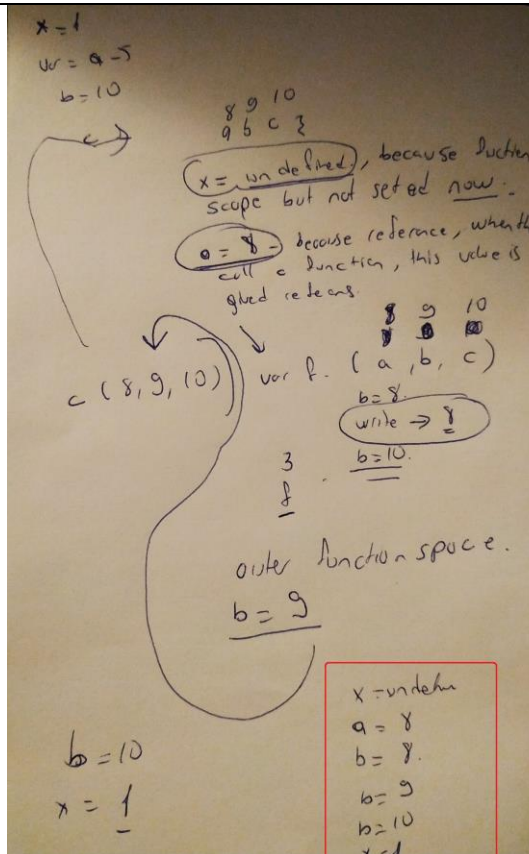 x = 1
var = a = 5
b = 10
c
8 9 10
a b c {
x = undefined, because fuction
scope but not seted now.
a = 8 - because referance, when th
call c function, this value is
c (8, 9, 10)
var f. (a, b, c)
8 9 10
b = 8.
write → 8
b = 10.
3
f
outer function space.
b = 9
b = 10
x = 1
a = 8
b = 8.
b = 9
b = 10
x = 1